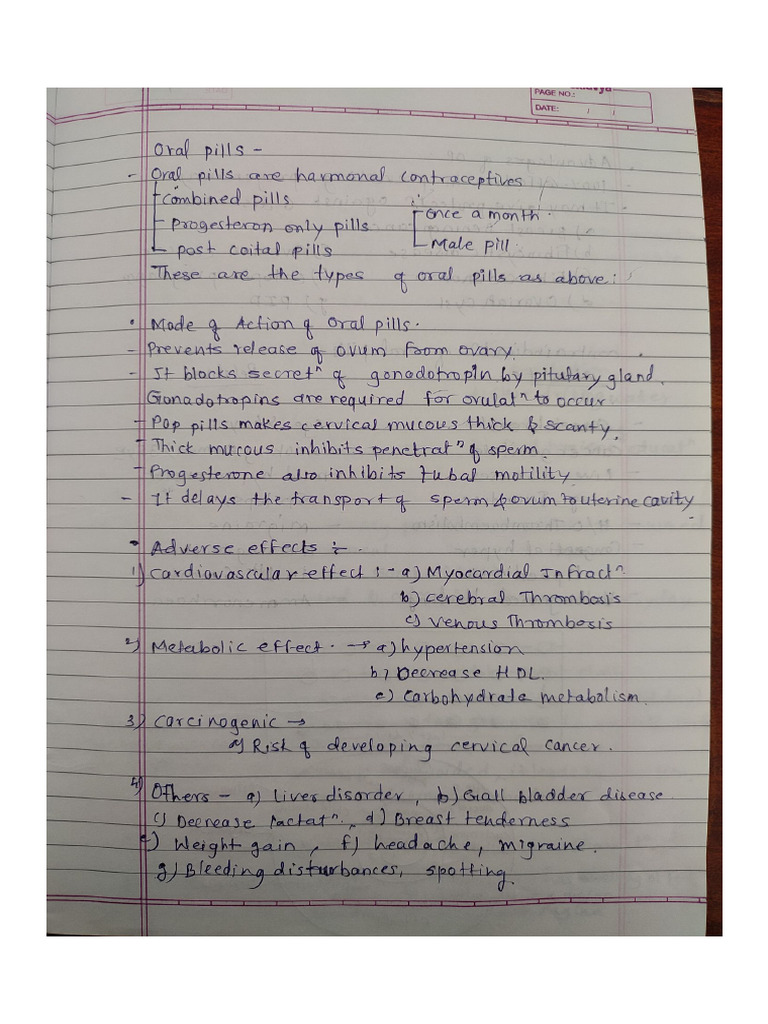 PAGE NO.:
DATE: / /
Oral pills -
- Oral pills are harmonal contraceptives
combined pills
once a month.
progesteron only pills
Male pill
post coital pills
These are the types of oral pills as above:
• Mode of Action of Oral pills.
- Prevents release of ovum from ovary.
- It blocks secretⁿ of gonodotropin by pitutary gland.
Gonadotropins are required for orulatⁿ to occur
- Pop pills makes cervical mucous thick & scanty.
- Thick mucous inhibits penetratⁿ of sperm.
- Progesterone also inhibits tubal motility.
- It delays the transport of sperm & ovum to uterine cavity
• Adverse effects :-
1) Cardiovascular effect :- a) Myocardial Infractⁿ
b) cerebral Thrombosis
c) Venous Thrombosis
2) Metabolic effect. → a) hypertension
b) Decrease HDL.
c) Carbohydrate metabolism.
3) Carcinogenic →
a) Risk of developing cervical cancer.
4) Others - a) Liver disorder, b) Gall bladder disease
c) Decrease lactatⁿ., d) Breast tenderness
e) Weight gain, f) headache, migraine.
g) Bleeding disturbances, spotting.